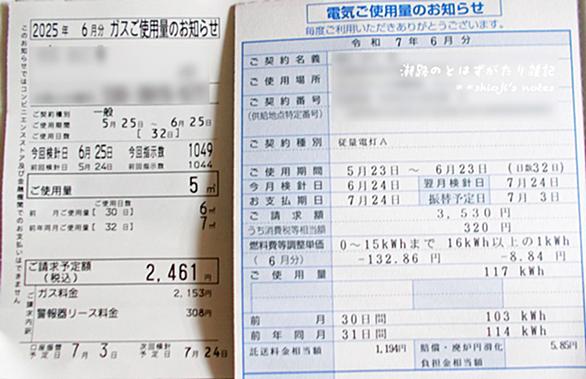 2025年 6月分 ガスご使用量のお知らせ
このお知らせではコンビニエンスストア及び金融機関でのお支払いはできません
ご契約種別 一般
ご使用期間 5月25日～ 6月25日
ご使用日数 [ 32日]
今回検針日 6月25日 今回指示数 1049
前回検針日 5月24日 前回指示数 1044
ご使用量 5㎥
ご使用日数
前 月ご使用量[ 30日] 6㎥
前年同月ご使用量[ 32日] 7㎥
ご請求予定額
(税込) 2,461円
ご請求内訳
ガス料金 2,153円
警報器リース料金 308円
口座振替予定日 7月 3日 次回検針予定日 7月24日
電気ご使用量のお知らせ
毎度ご利用いただきありがとうございます。
令和 7年 6月分
ご契約名義
ご使用場所
潮路のとはずがたり雑記
**shioji's notes
ご契約番号
(供給地点特定番号)
ご契約種別 従量電灯A
ご使用期間 5月23日 ～ 6月23日 (日数32日)
今月検針日 6月24日 翌月検針日 7月24日
お支払期日 7月24日 振替予定日 7月 3日
ご請求額 3,530 円
うち消費税等相当額 320 円
燃料費等調整単価 0～15kWhまで 16kWh以上の1kWh
(6月分) -132.86 円 -8.84 円
ご使用量 117 kWh
前月 30日間 103 kWh
前年同月 31日間 114 kWh
託送料金相当額 1,194円 賠償・廃炉円滑化負担金相当額 5.85円